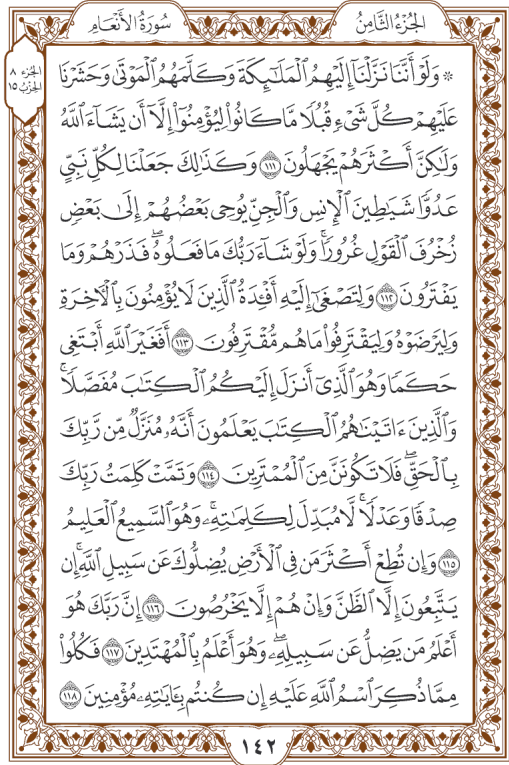 الجزء الثامن
سورة الأنعام
الجزء ٨
الحزب ١٥
۞ وَلَوْ أَنَّنَا نَزَّلْنَآ إِلَيْهِمُ ٱلْمَلَٰٓئِكَةَ وَكَلَّمَهُمُ ٱلْمَوْتَىٰ وَحَشَرْنَا
عَلَيْهِمْ كُلَّ شَىْءٍ قُبُلًا مَّا كَانُوا۟ لِيُؤْمِنُوٓا۟ إِلَّآ أَن يَشَآءَ ٱللَّهُ
وَلَٰكِنَّ أَكْثَرَهُمْ يَجْهَلُونَ ١١١ وَكَذَٰلِكَ جَعَلْنَا لِكُلِّ نَبِىٍّ
عَدُوًّا شَيَٰطِينَ ٱلْإِنسِ وَٱلْجِنِّ يُوحِى بَعْضُهُمْ إِلَىٰ بَعْضٍ
زُخْرُفَ ٱلْقَوْلِ غُرُورًا ۚ وَلَوْ شَآءَ رَبُّكَ مَا فَعَلُوهُ ۖ فَذَرْهُمْ وَمَا
يَفْتَرُونَ ١١٢ وَلِتَصْغَىٰٓ إِلَيْهِ أَفْـِٔدَةُ ٱلَّذِينَ لَا يُؤْمِنُونَ بِٱلْءَاخِرَةِ
وَلِيَرْضَوْهُ وَلِيَقْتَرِفُوا۟ مَا هُم مُّقْتَرِفُونَ ١١٣ أَفَغَيْرَ ٱللَّهِ أَبْتَغِى
حَكَمًا وَهُوَ ٱلَّذِىٓ أَنزَلَ إِلَيْكُمُ ٱلْكِتَٰبَ مُفَصَّلًا ۚ
وَٱلَّذِينَ ءَاتَيْنَٰهُمُ ٱلْكِتَٰبَ يَعْلَمُونَ أَنَّهُۥ مُنَزَّلٌ مِّن رَّبِّكَ
بِٱلْحَقِّ ۖ فَلَا تَكُونَنَّ مِنَ ٱلْمُمْتَرِينَ ١١٤ وَتَمَّتْ كَلِمَتُ رَبِّكَ
صِدْقًا وَعَدْلًا ۚ لَّا مُبَدِّلَ لِكَلِمَٰتِهِۦ ۚ وَهُوَ ٱلسَّمِيعُ ٱلْعَلِيمُ
١١٥ وَإِن تُطِعْ أَكْثَرَ مَن فِى ٱلْأَرْضِ يُضِلُّوكَ عَن سَبِيلِ ٱللَّهِ ۚ إِن
يَتَّبِعُونَ إِلَّا ٱلظَّنَّ وَإِنْ هُمْ إِلَّا يَخْرُصُونَ ١١٦ إِنَّ رَبَّكَ هُوَ
أَعْلَمُ مَن يَضِلُّ عَن سَبِيلِهِۦ ۖ وَهُوَ أَعْلَمُ بِٱلْمُهْتَدِينَ ١١٧ فَكُلُوا۟
مِمَّا ذُكِرَ ٱسْمُ ٱللَّهِ عَلَيْهِ إِن كُنتُم بِـَٔايَٰتِهِۦ مُؤْمِنِينَ ١١٨
١٤٢